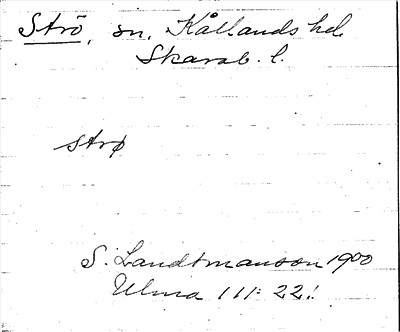 Strö, sn, Kållands hd.
Skarab. l.
strø
S. Landtmanson 1900
Ulma 111: 22.